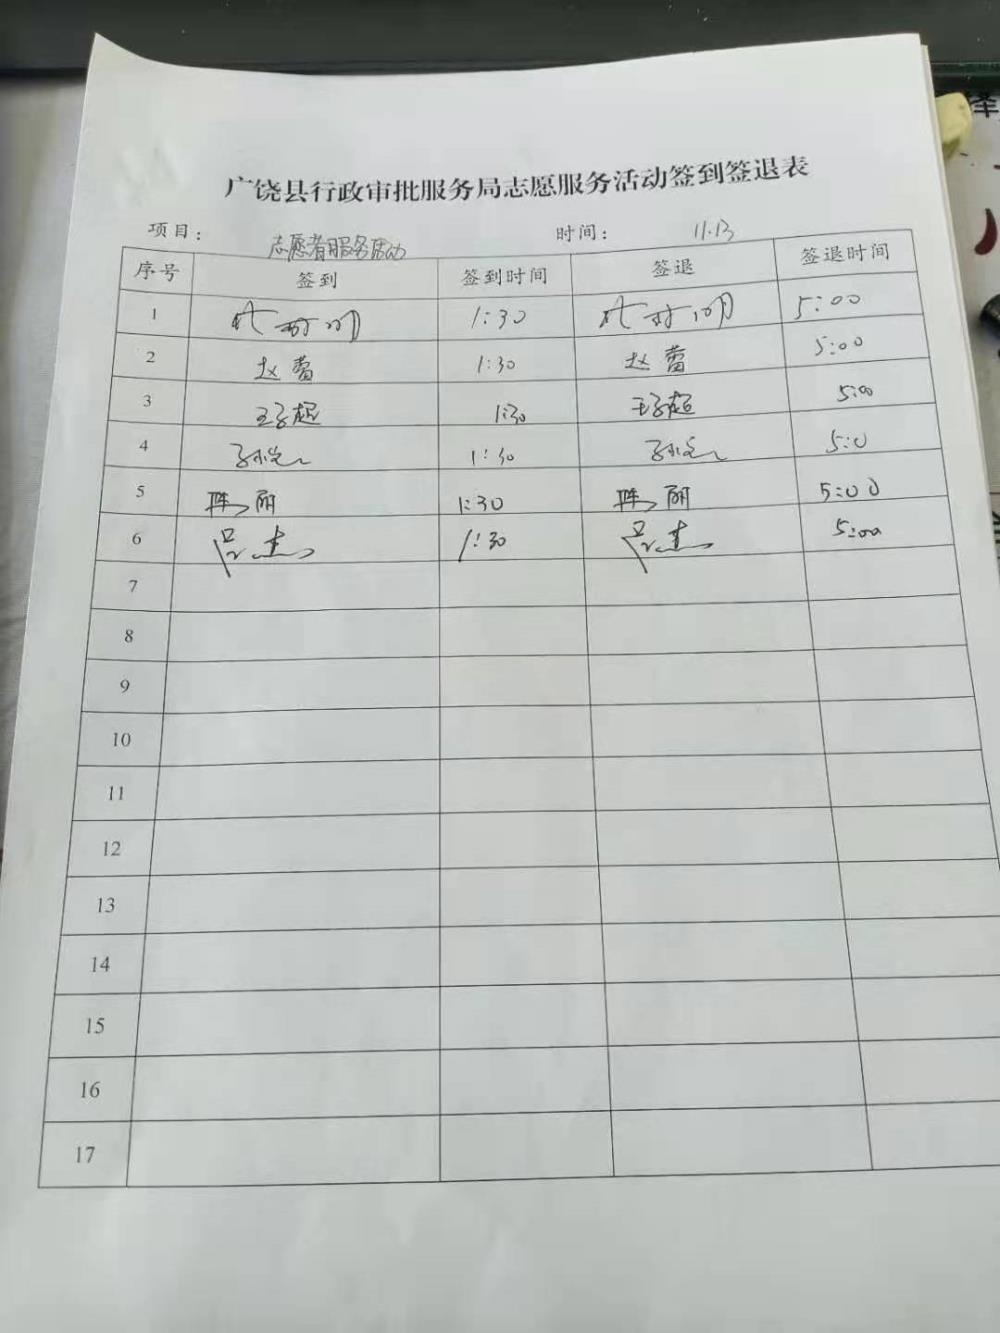 广饶县行政审批服务局志愿服务活动签到签退表
项目： 志愿者服务活动 时间： 11.13
序号 签到 签到时间 签退 签退时间
1 1:30 5:00
2 赵蕾 1:30 赵蕾 5:00
3 王子超 1:30 王子超 5:00
4 1:30 5:0
5 陈丽 1:30 陈丽 5:00
6 吕杰 1:30 吕杰 5:00
7
8
9
10
11
12
13
14
15
16
17